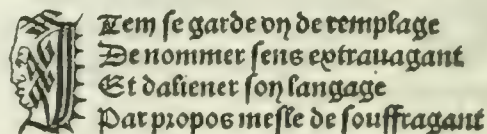 Item se garde on de remplage
De nommer sens extrauagant
Et daliener son langage
Par propos mesle de souffragant